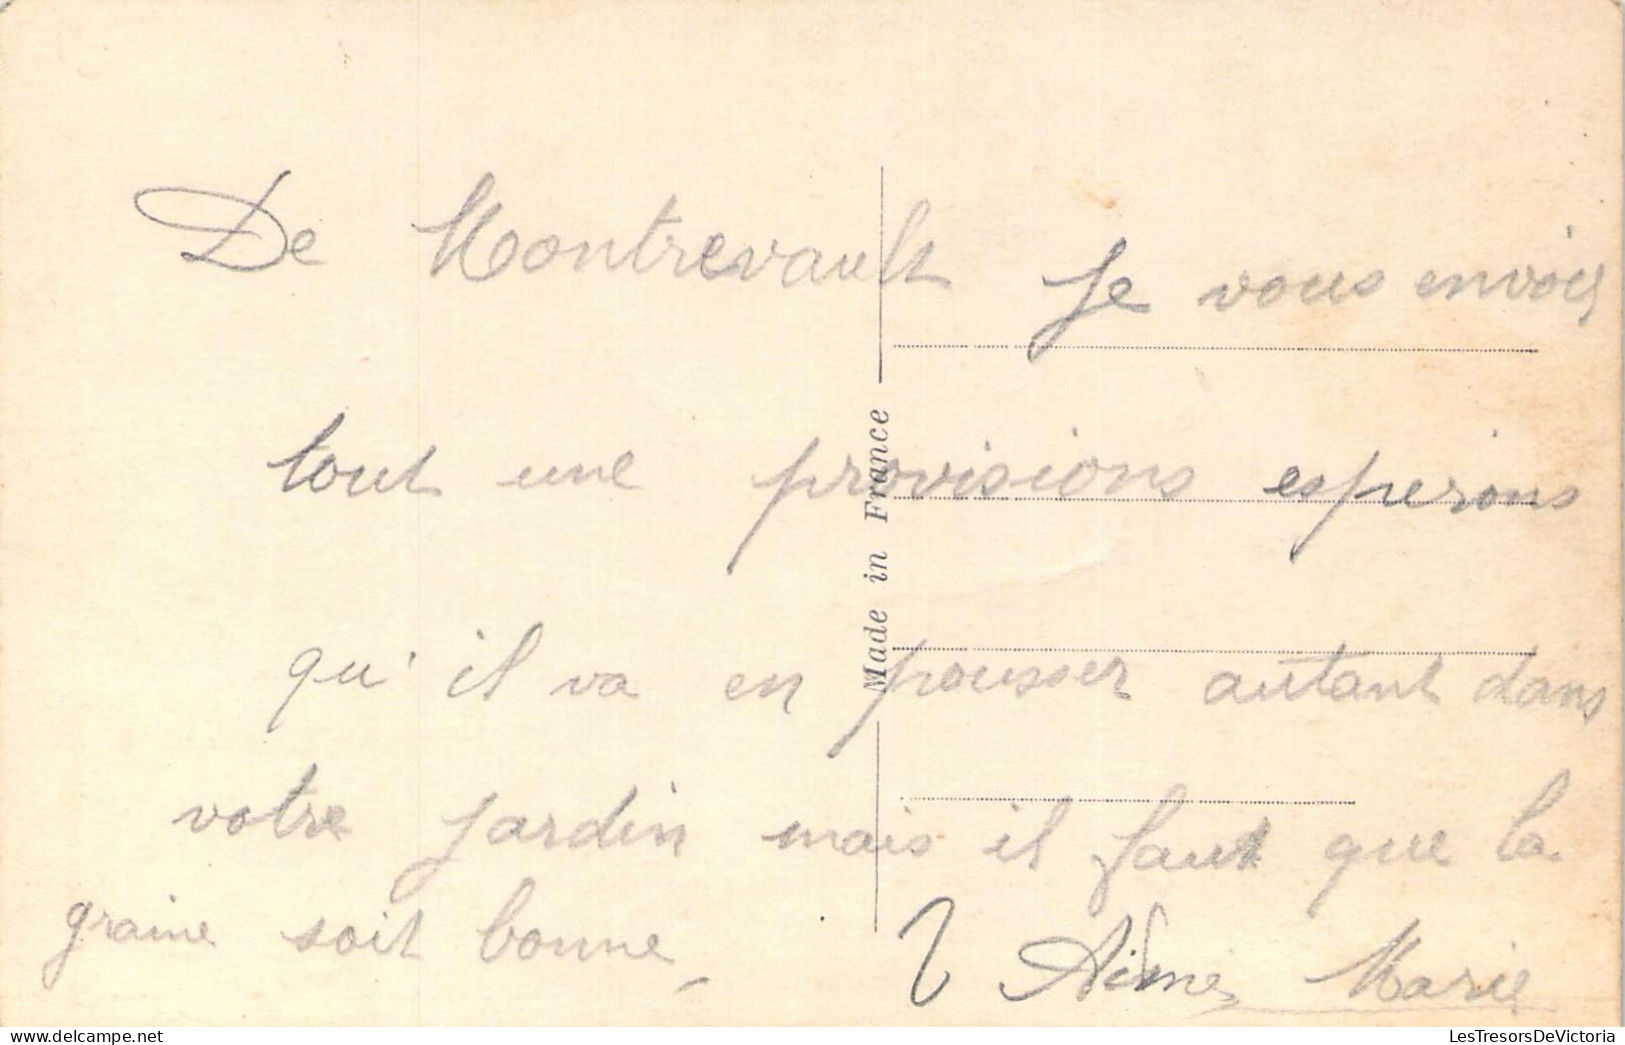 De Montrevault Je vous envois
tout une provisions esperons
qu'il va en pousser autant dans
votre jardin mais il faut que la
graine soit bonne
Aimé Marie
Made in France
LesTresorsDeVictoria